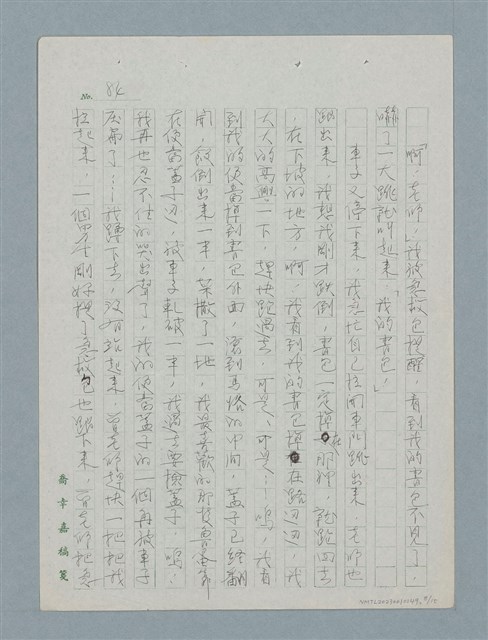 No. 84
啊，老師，我被急救包提醒，看到我的書包不見了，
嚇了一大跳就叫起來，「我的書包」
車子又停下來，我急忙自己拉開車門跳出來，老師也
跟出來，我想我剛才跌倒，書包一定掉在那邊，就跑回去
，在下坡的地方，啊，我看到我的書包掉在路邊，我
大大的高興一下，趕快跑過去，可是、可是……嗚，我看
到我的便當掉到書包外面，滾到馬路的中間，蓋子已經翻
開，飯倒出來一半，菜撒了一地，我最喜歡的那
在便當盒子邊，被車子軋破一半，我過去要撿蓋子，嗚，
我再也忍不住的哭出聲了，我的便當盒子的一個角被車子
壓扁了……我蹲下去，沒有站起來，曾老師趕快一把把我
拉起來，一個男生剛好提了急救包也跳下來，曾老師把急
喬幸嘉稿箋